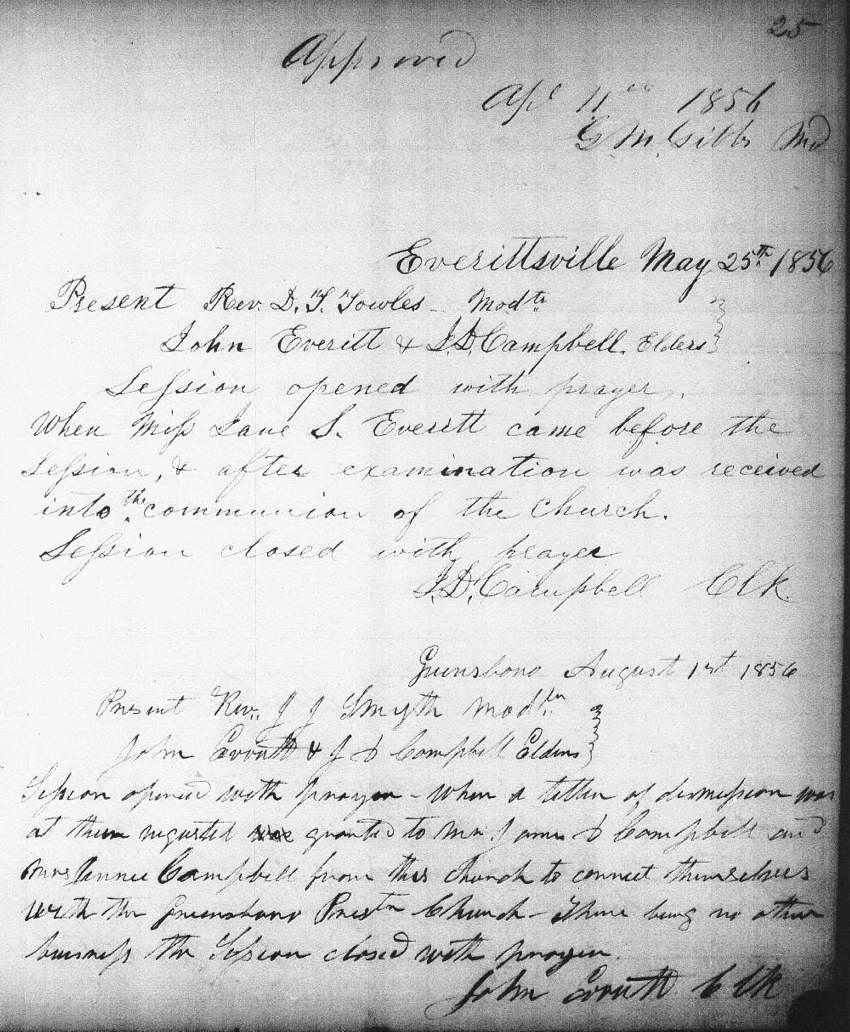 25
Approved
Apl 11th 1856
G. M. Gibbs Md
Everittsville May 25th 1856
Present Rev. D. T. Towles Modtr
John Everitt & J. D. Campbell. Elders
Session opened with prayer.
When Miss Jane S. Everitt came before the
Session, & after examination was received
into the communion of the church.
Session closed with prayer
J. D. Campbell Clk.
Greensboro August 1st 1856
Present Rev. J J Smyth Modtr
John Everitt & J D Campbell Elders
Session opened with prayer - When a letter of dismission was
at their request granted to Mr James D Campbell and
Mrs Campbell from this church to connect themselves
with the Greensboro Prestn Church - There being no other
business the Session closed with prayer.
John Everitt Clk